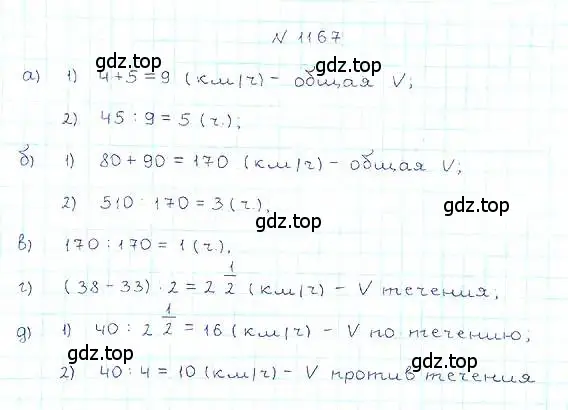 N 1167
gdz.top
gdz.top
а) 1) 4+5=9 (км/ч) - общая V;
2) 45 : 9 = 5 (ч.);
б) 1) 80 + 90 = 170 (км/ч) - общая V;
gdz.top
2) 510 : 170 = 3 (ч.),
gdz.top
в) 170 : 170 = 1 (ч.).
г) (38 - 33) · 2 = 2 1/2 (км/ч) - V течения;
д) 1) 40 : 2 1/2 = 16 (км/ч) - V по течению;
gdz.top
gdz.top
2) 40 : 4 = 10 (км/ч) - V против течения